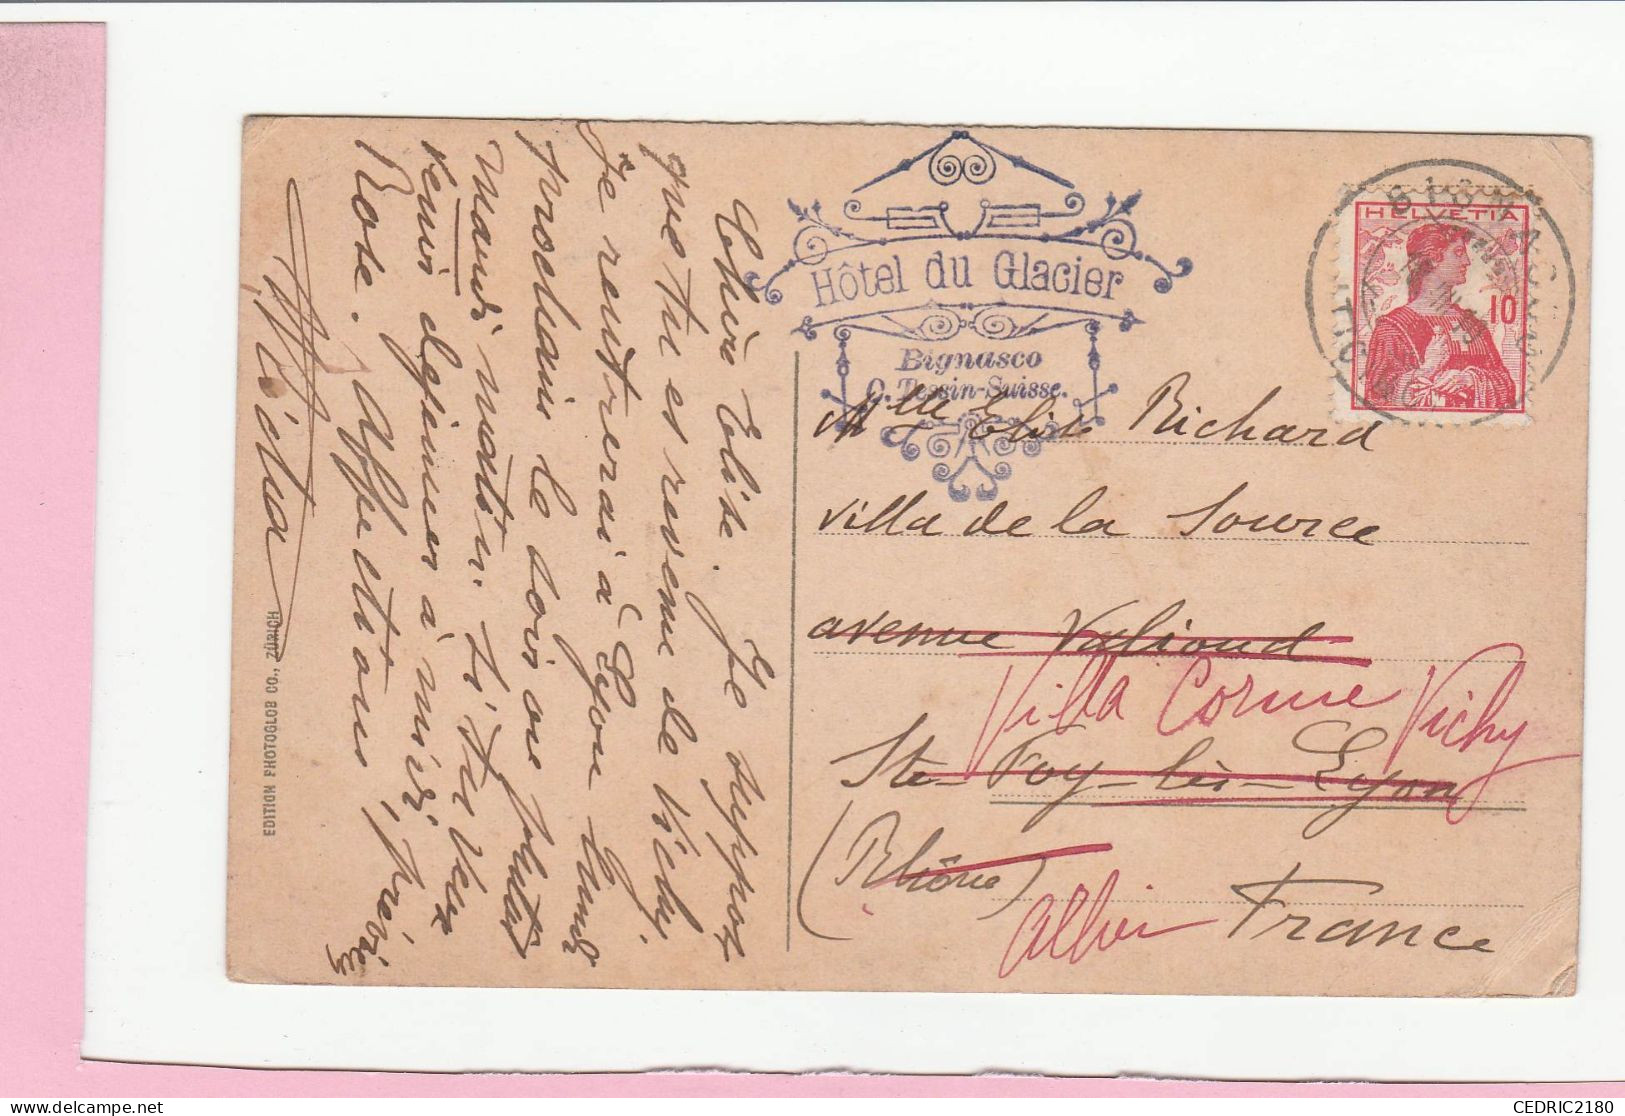 Chère Elise. Je suppose
que tu es revenue de Vichy.
Je rentrerai à Lyon lundi
prochain le soir ou plutôt
mardi matin. Si tu veux
venir déjeuner à midi, préviens
Rose. Affections
EDITION PHOTOGLOB CO., ZÜRICH
Hôtel du Glacier
Bignasco
C. Tessin-Suisse.
HELVETIA
10
BIGNASCO
Mlle Elise Richard
Villa de la Source
avenue Valioud
Villa Corme Vichy
Ste-Foy-lès-Lyon
(Rhône)
Allier
France
CEDRIC2180